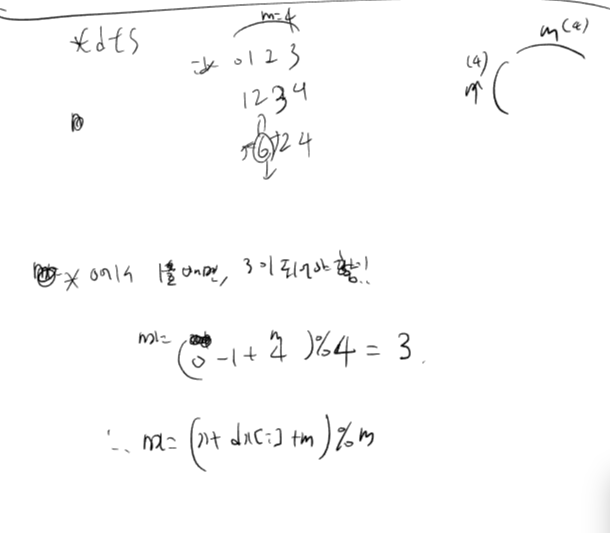 m=4
m(4)
* dfs
0 1 2 3
(4)
n
1 2 3 4
6 2 4
* 0에서 1을 빼면, 3이 되어야 함!!
nx = (0 - 1 + 4)%4 = 3.
m
∴ nx = (x + dx[i] + m)%m